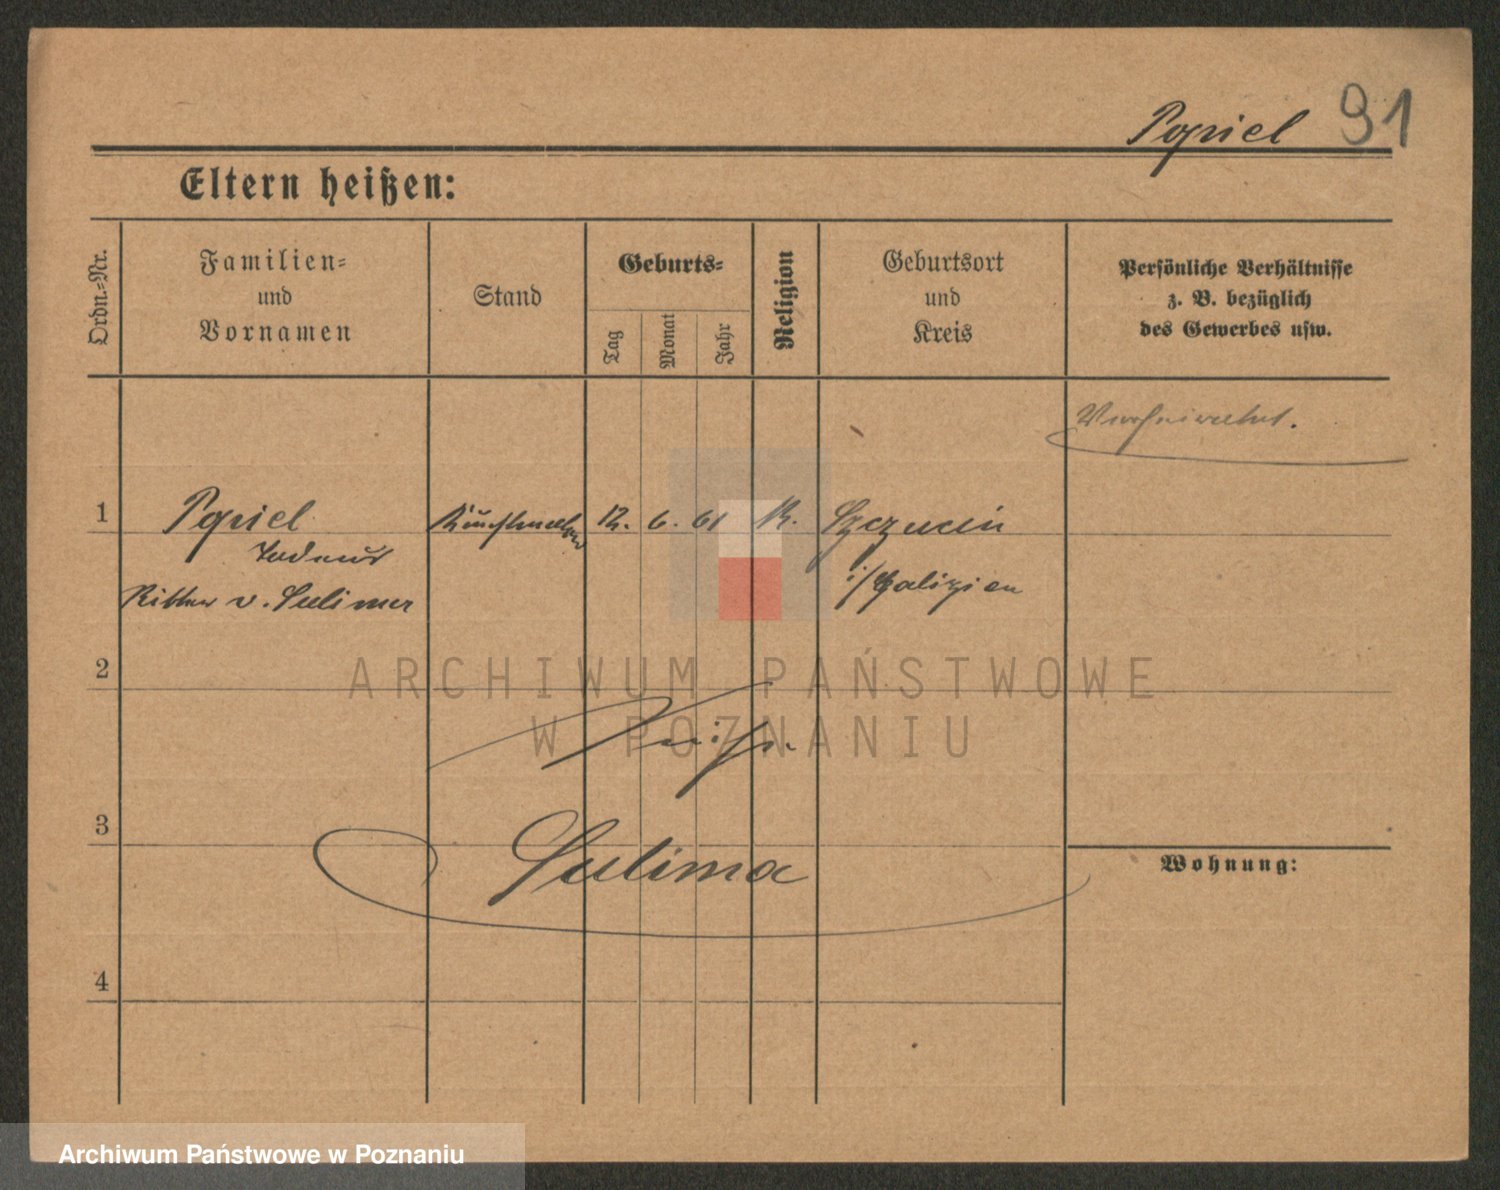 Popiel 91
Eltern heißen:
Ordn.-Nr.
Familien-
und
Vornamen
Stand
Geburts-
Tag
Monat
Jahr
Religion
Geburtsort
und
Kreis
Persönliche Verhältnisse
z. B. bezüglich
des Gewerbes usw.
Verheiratet.
1 Popiel Kunstmaler 12. 6. 61 K. Szczucin
Tadeus
Ritter v. Sulimer
i/Galizien
2
ARCHIWUM PAŃSTWOWE
W POZNANIU
3
Sulima
Wohnung:
4
Archiwum Państwowe w Poznaniu